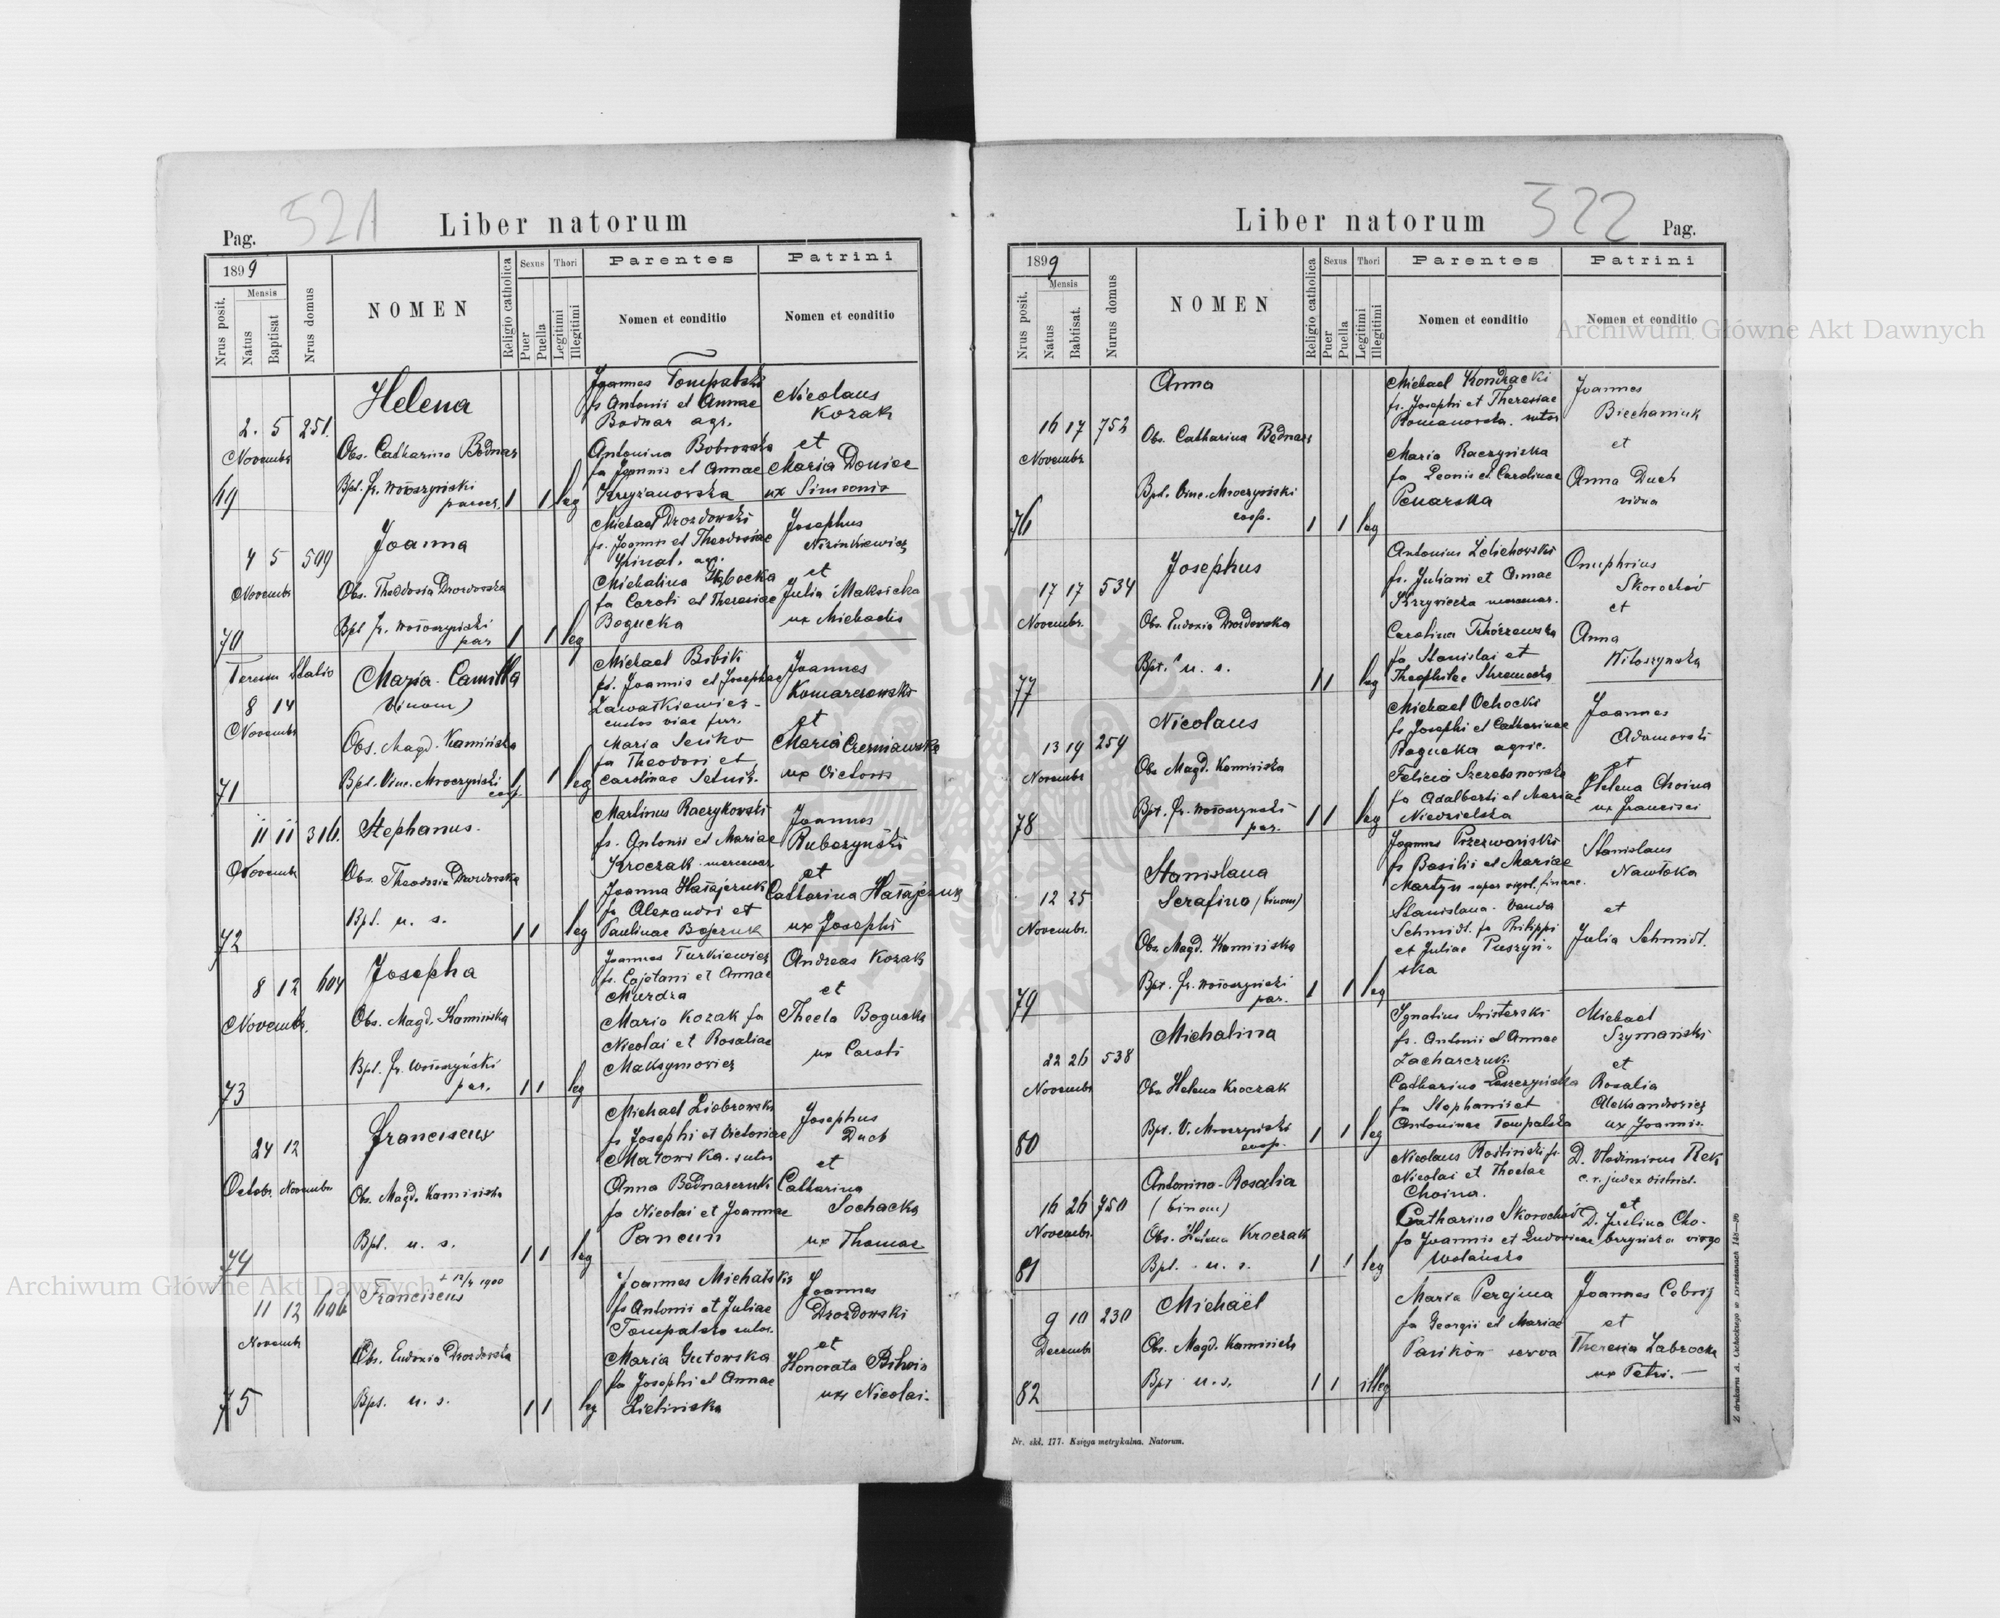 521
Pag.
Liber natorum
1899
Mensis
Nrus posit.
Natus
Baptisat
Nrus domus
NOMEN
Religio catholica
Sexus
Puer
Puella
Thori
Legitimi
Illegitimi
Parentes
Nomen et conditio
Patrini
Nomen et conditio
69
2. 5 251.
Novembr
Helena
Obs. Catharina Bodnar
Bpt. fr. Wołoszyński
paroch.
1 1 leg
Joannes Tompalski
fs Antonii et Annae
Bodnar agr.
Antonina Bobrowska
fa Joannis et Annae
Kryżanowska
Nicolaus
Kozak
et
Maria Doniec
ux Simeonis
70
4 5 509
Novembr
Joanna
Obs. Theodosia Drozdowska
Bpt fr. Wołoszyński
par
1 1 leg
Michael Drozdowski
fs. Joannis et Theodosiae
Michalina
fa Caroli et Theresiae
Bogucka
Josephus
et
Julia Maksicka
ux Michaelis
71
8 14
Novembr
Maria-Camilla
binom)
Obs. Magd. Kamińska
Bpt. Vinc. Mroczyński
coop.
1 1 leg
Michael Bibik
fs. Joannis et Josephae
Zawałkiewicz-
custos viae ferr.
Maria Seńko
fa Theodori et
Carolinae
Joannes
Komarczowski
et
Maria Czerniawska
ux Victoris
72
11 11 316.
Novembr
Stephanus.
Obs. Theodosia Drozdowska
Bpt. u. s.
1 1 leg
Martinus Raczykowski
fs. Antonii et Mariae
Kroczak mercenar
Joanna Hałajczuk
fa Alexandri et
Paulinae Bojczuk
Joannes
Rubczyński
et
Catharina Hałajczuk
ux Josephi
73
8 12 604
Novembr.
Josepha
Obs. Magd. Kamińska
Bpt. fr. Wołoszyński
par.
1 1 leg
Joannes Turkiewicz
fs. Cajetani et Annae
Murdza
Maria Kozak fa
Nicolai et Rosaliae
Maksymowicz
Andreas Kozak
et
Thecla Bogucka
ux Caroli
74
24 12
Octobr. Novembr
Franciscus
Obs. Magd. Kamińska
Bpt. u. s.
1 1 leg
Michael Ziobrowski
fs Josephi et Victoriae
sutor
Anna Bodnarczuk
fa Nicolai et Joannae
Pancun
Josephus
Duch
et
Catharina
Sochacka
ux Thomae
75
11 12 606
Novembr
Franciscus
+ 12/4 1900
Obs. Eudoxia Drozdowska
Bpt. u. s.
1 1 leg
Joannes Michalski
fs Antonii et Juliae
Tompalska sutor.
Maria Gutowska
fa Josephi et Annae
Zielińska
Joannes
Drozdowski
et
Honorata
ux Nicolai.
Liber natorum
522
Pag.
1899
Mensis
Nrus posit.
Natus
Babtisat.
Nurus domus
NOMEN
Religio catholica
Sexus
Puer
Puella
Thori
Legitimi
Illegitimi
Parentes
Nomen et conditio
Patrini
Nomen et conditio
76
16 17 752
Novembr
Anna
Obs. Catharina Bodnar
Bpt. Vinc. Mroczyński
coop.
1 1 leg
Michael Kondracki
fs. Josephi et Theresiae
Romanowska. sutor
Maria Raczyńska
fa Leonis et Carolinae
Penarska
Joannes
Biechaniuk
et
Anna Duch
vidua
77
17 17 534
Novembr.
Josephus
Obs. Eudoxia Drozdowska
Bpt. u. s.
1 1 leg
Antonius Zelichowski
fs. Juliani et Annae
Krzywiecka mercenar.
Carolina Tchórzewska
fa Stanislai et
Theophilae
Onuphrius
Skorochód
et
Anna
Witoszyńska
78
13 19 259
Novembr
Nicolaus
Obs Magd. Kamińska
Bpt. fr. Wołoszyński
par.
1 1 leg
Michael Ochocki
fs Josephi et Catharinae
Bogucka agric.
Felicia
fa Adalberti et Mariae
Niedzielska
Joannes
Adamowski
et
Helena Choina
ux Francisci
79
12 25
Novembr.
Stanislaua
Serafina (binom)
Obs. Magd. Kamińska
Bpt. fr. Wołoszyński
par.
1 1 leg
Joannes Przerwański
fs Basilii et Mariae
Martyn super vigil. financ.
Stanislaua-Vanda
Schmidt. fa Philippi
et Juliae Puszyń-
ska
Stanislaus
Nawłoka
et
Julia Schmidt.
80
22 26 538
Novembr
Michalina
Obs Helena Kroczak
Bpt. V. Mroczyński
coop.
1 1 leg
Ignatius Swisterski
fs. Antonii et Annae
Zacharczuk.
Catharina Leszczyńska
fa Stephani et
Antoninae Tompalska
Michael
Szymański
et
Rosalia
Aleksandrowicz
ux Joannis.
81
16 26 750
Novembr.
Antonina-Rosalia
(binom)
Obs. Helena Kroczak
Bpt. u. s.
1 1 leg
Nicolaus fs.
Nicolai et Theclae
Choina.
Catharina Skorochód
fa Joannis et Ludovicae
Wolańska
D. Vladimirus Rek
c. r. judex district.
et
D. Justina Cho-
brzyńska virgo
82
9 10 230
Decembr
Michaël
Obs. Magd. Kamińska
Bpt u. s.
1 1 illeg
Maria Perejma
fa Georgii et Mariae
Pasikón serva
Joannes
et
Theresia Zabrocka
ux Petri.—
Nr. skł. 177. Księga metrykalna. Natorum.
Archiwum Główne Akt Dawnych
Archiwum Główne Akt Dawnych